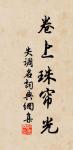 卷上珠帘光
失调名词典佣集